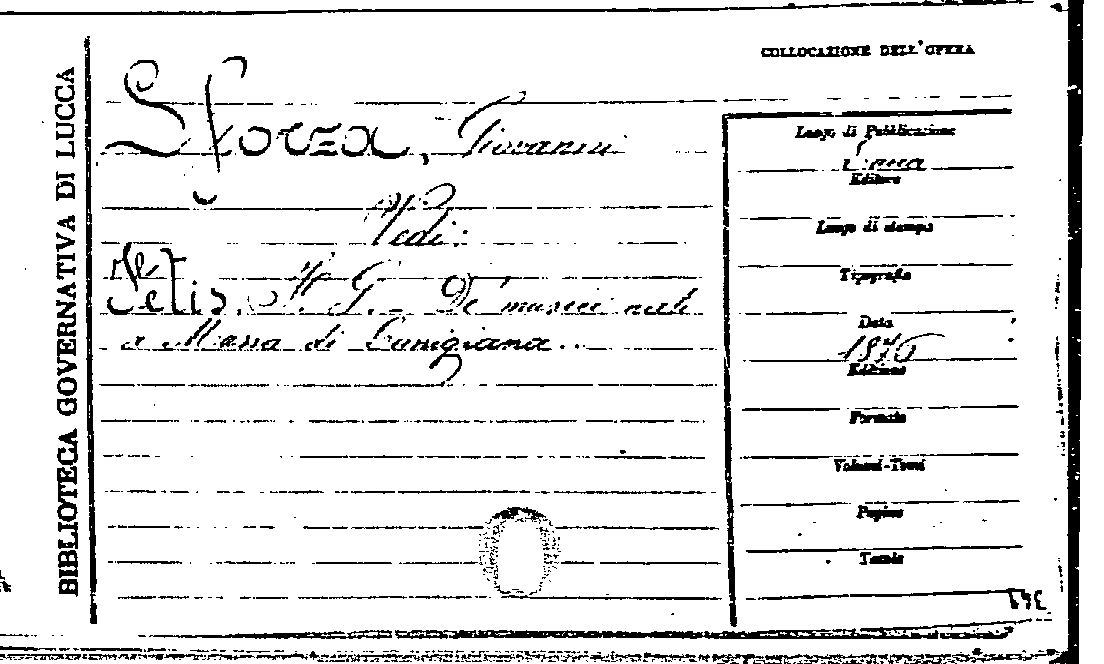 BIBLIOTECA GOVERNATIVA DI LUCCA
COLLOCAZIONE DELL'OPERA
Sforza, Giovanni
Vedi:
Fetis, F. G. - De' musici nati
a Massa di Lunigiana..
Luogo di Pubblicazione
Editore
Luogo di stampa
Tipografia
Data
1876
Edizione
Formato
Volumi-Tomi
Pagine
Tavole